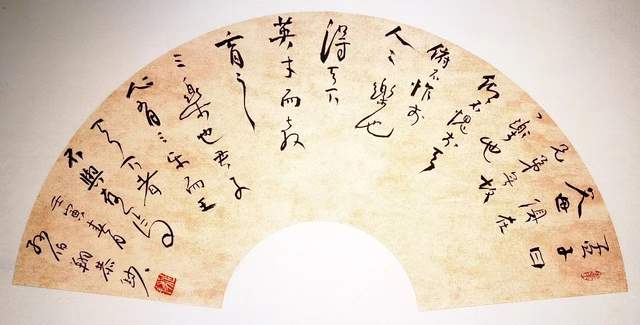 孟子曰
父母俱在
兄弟無故
一樂也仰
不愧於天
俯不怍於
人二樂也
得天下
英才而教
育之
三樂也君子
有三乐而王
天下者
不與存焉
壬寅春